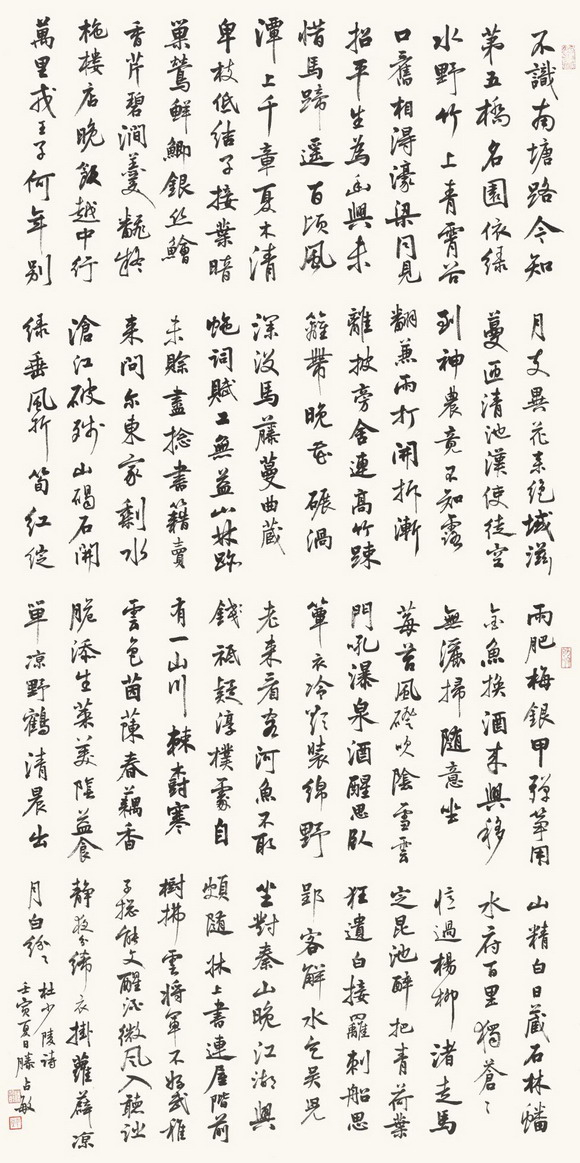 不識南塘路今知
第五橋名園依綠
水野竹上青霄谷
口舊相得濠梁同見
招平生為幽興未
惜馬蹄遙百頃風
潭上千章夏木清
卑枝低結子接葉暗
巢鶯鮮鯽銀絲鱠
香芹碧澗羹翻疑
柂樓底晚飯越中行
萬里戎王子何年別
月支異花來絕域滋
蔓匝清池漢使徒空
到神農竟不知露
翻兼雨打開拆漸
離披旁舍連高竹疎
籬帶晚花碾渦
深沒馬藤蔓曲藏
蛇詞賦工無益山林跡
未賒盡捻書籍賣
來問爾東家剩水
滄江破殘山碣石開
綠垂風折筍紅綻
雨肥梅銀甲彈箏用
金魚換酒來興移
無灑掃隨意坐
莓苔風磴吹陰雪雲
門吼瀑泉酒醒思臥
簟衣冷欲裝綿野
老來看客河魚不取
錢祗疑淳樸處自
有一山川棘樹寒
雲色茵蔯春藕香
脆添生菜美陰益食
單涼野鶴清晨出
山精白日藏石林蟠
水府百里獨蒼〻
憶過楊柳渚走馬
定昆池醉把青荷葉
狂遺白接䍦刺船思
郢客解水乞吳兒
坐對秦山晚江湖興
頗隨牀上書連屋階前
樹拂雲將軍不好武稚
子總能文醒酒微風入聽詩
靜夜分絺衣掛蘿薜涼
月白紛〻
杜少陵詩
壬寅夏日滕占敏